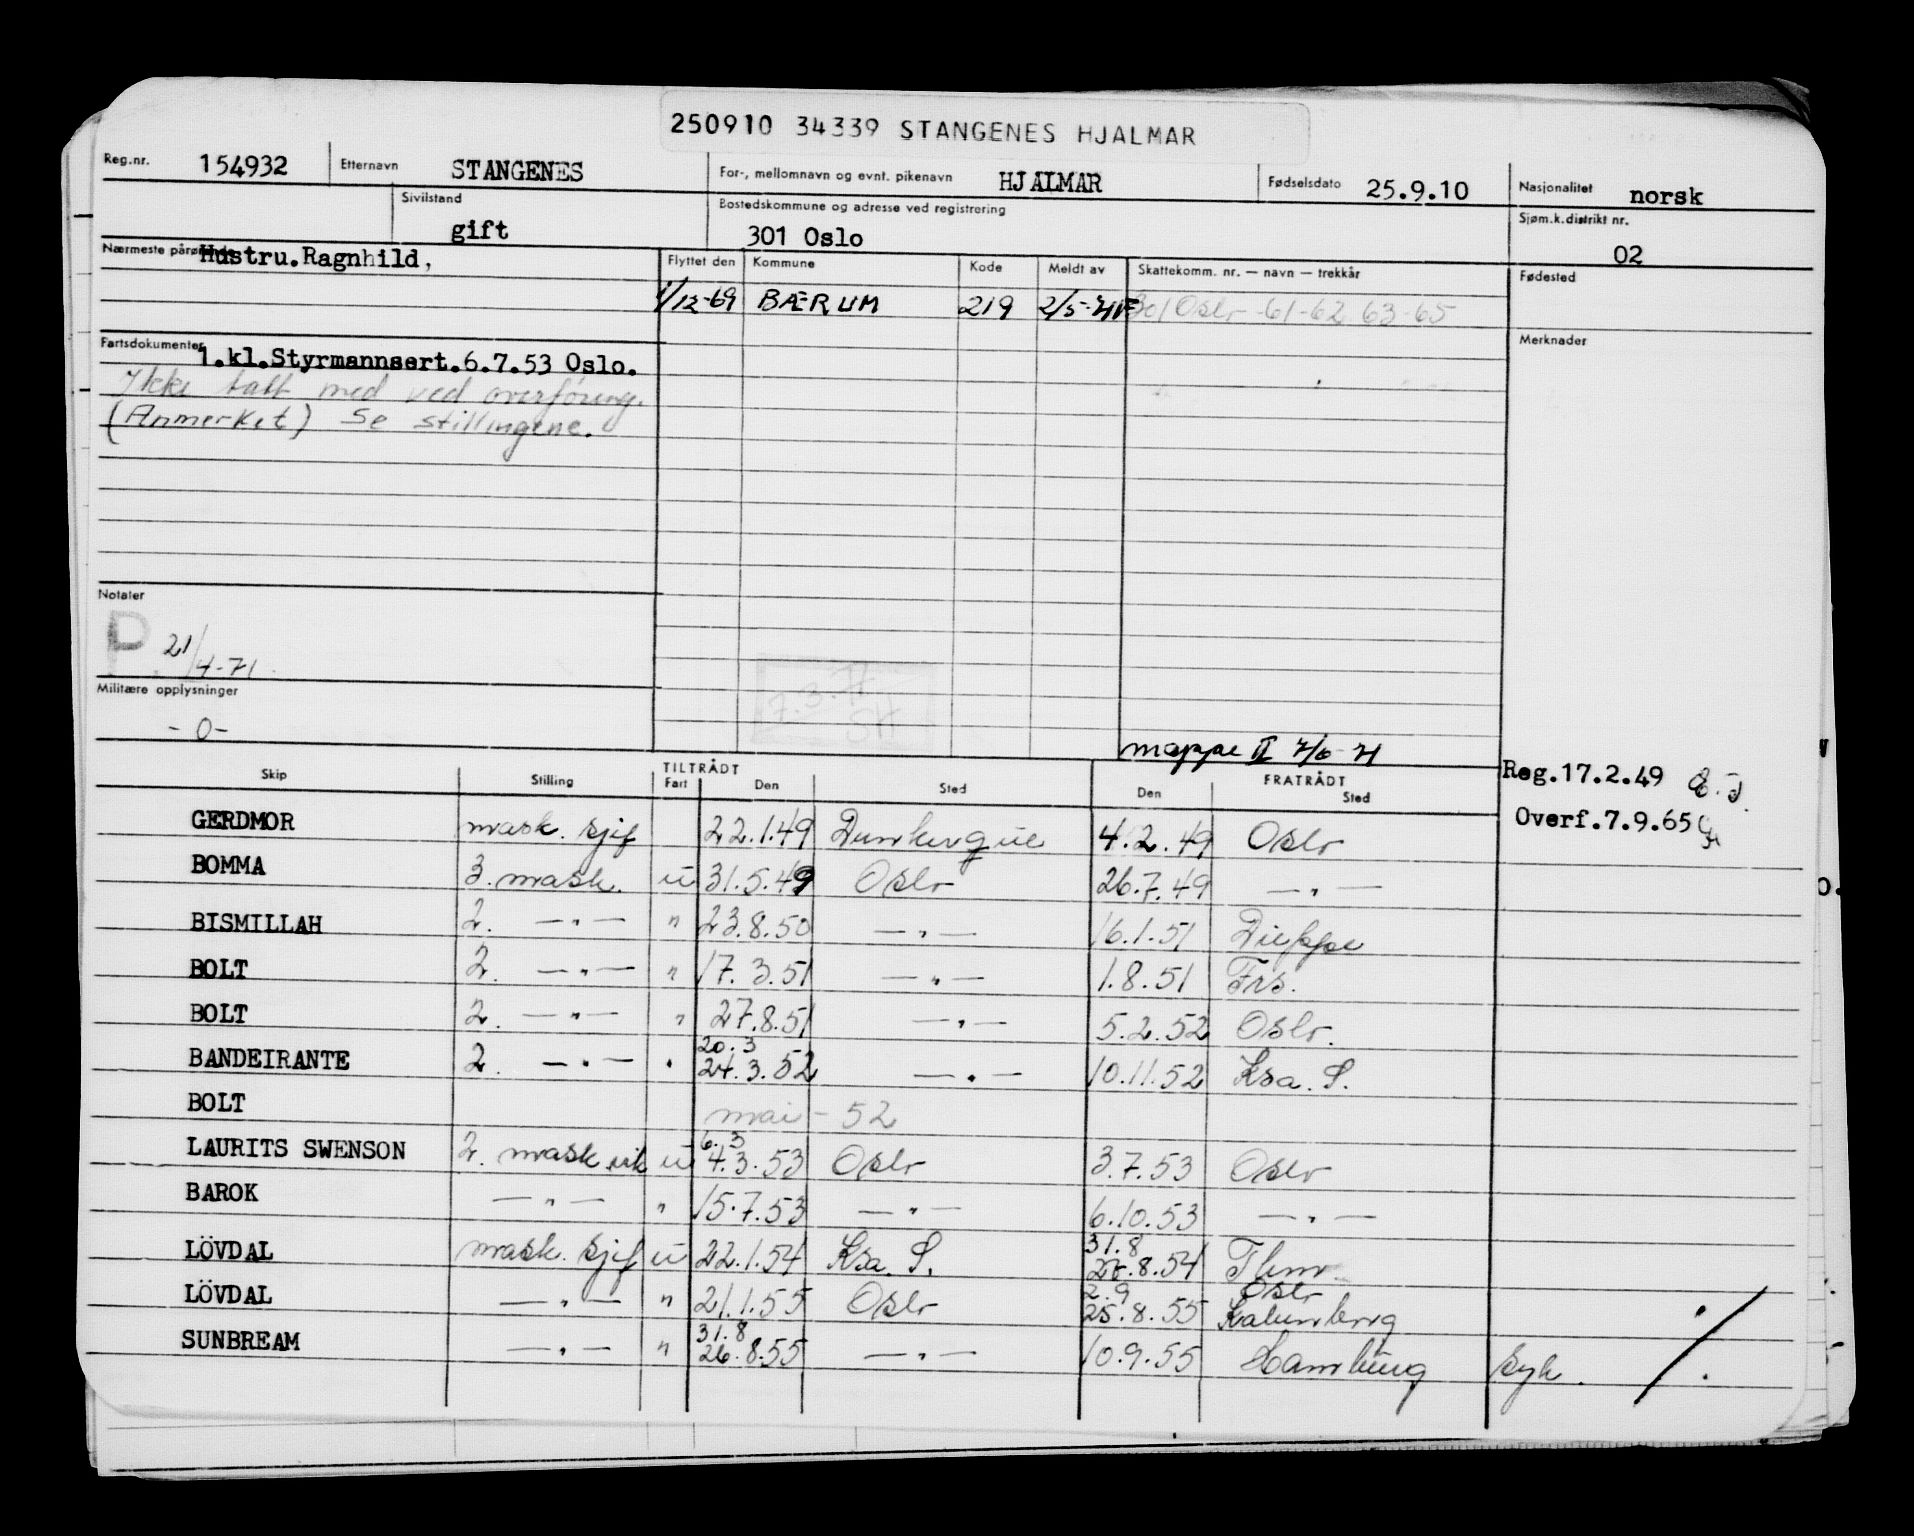 250910 34339 STANGENES HJALMAR
Reg.nr. 154932 Etternavn STANGENES For-, mellomnavn og evnt. pikenavn HJALMAR Fødselsdato 25.9.10 Nasjonalitet norsk
Sivilstand gift Bostedskommune og adresse ved registrering 301 Oslo Sjøm.k.distrikt nr. 02
Nærmeste Hustru.Ragnhild, Flyttet den Kommune Kode Meldt av Skattekomm. nr. — navn — trekkår Fødested
1/12-69 BÆRUM 219 2/5-71 301 Oslo -61-62 63-65
Fartsdokumenter 1.kl.Styrmannsert.6.7.53 Oslo. Merknader
Ikke tatt med ved overföring.
(Anmerket) Se stillingene.
Notater
P. 21/4-71.
7.3.77
SH
Militære opplysninger
-0-
mappe II 7/6-71
Skip Stilling TILTRÅDT Fart Den Sted FRATRÅDT Den Sted
Reg.17.2.49
Overf.7.9.65
GERDMOR mask. sjef 22.1.49 Dunkerque 4.2.49 Oslo
BOMMA 3. mask. u 31.5.49 Oslo 26.7.49 — " —
BISMILLAH 2. — " — " 23.8.50 — " — 16.1.51 Dieppe
BOLT 2. — " — " 17.3.51 — " — 1.8.51 Frs.
BOLT 2. — " — " 27.8.51 — " — 5.2.52 Oslo.
20.3
BANDEIRANTE 2. — " — " 24.3.52 — " — 10.11.52 Ksa. S.
BOLT mai - 52
6.3
LAURITS SWENSON 2. mask vik u 4.3.53 Oslo 3.7.53 Oslo
BAROK — " — " 15.7.53 — " — 6.10.53 — " —
31.8
LÖVDAL mask. sjef u 22.1.54 Ksa. S. 8.54
2.9 Oslo
LÖVDAL — " — " 21.1.55 Oslo 25.8.55 Kalundborg
31.8
SUNBREAM — " — " 26.8.55 — " — 10.9.55 Hamburg syk.